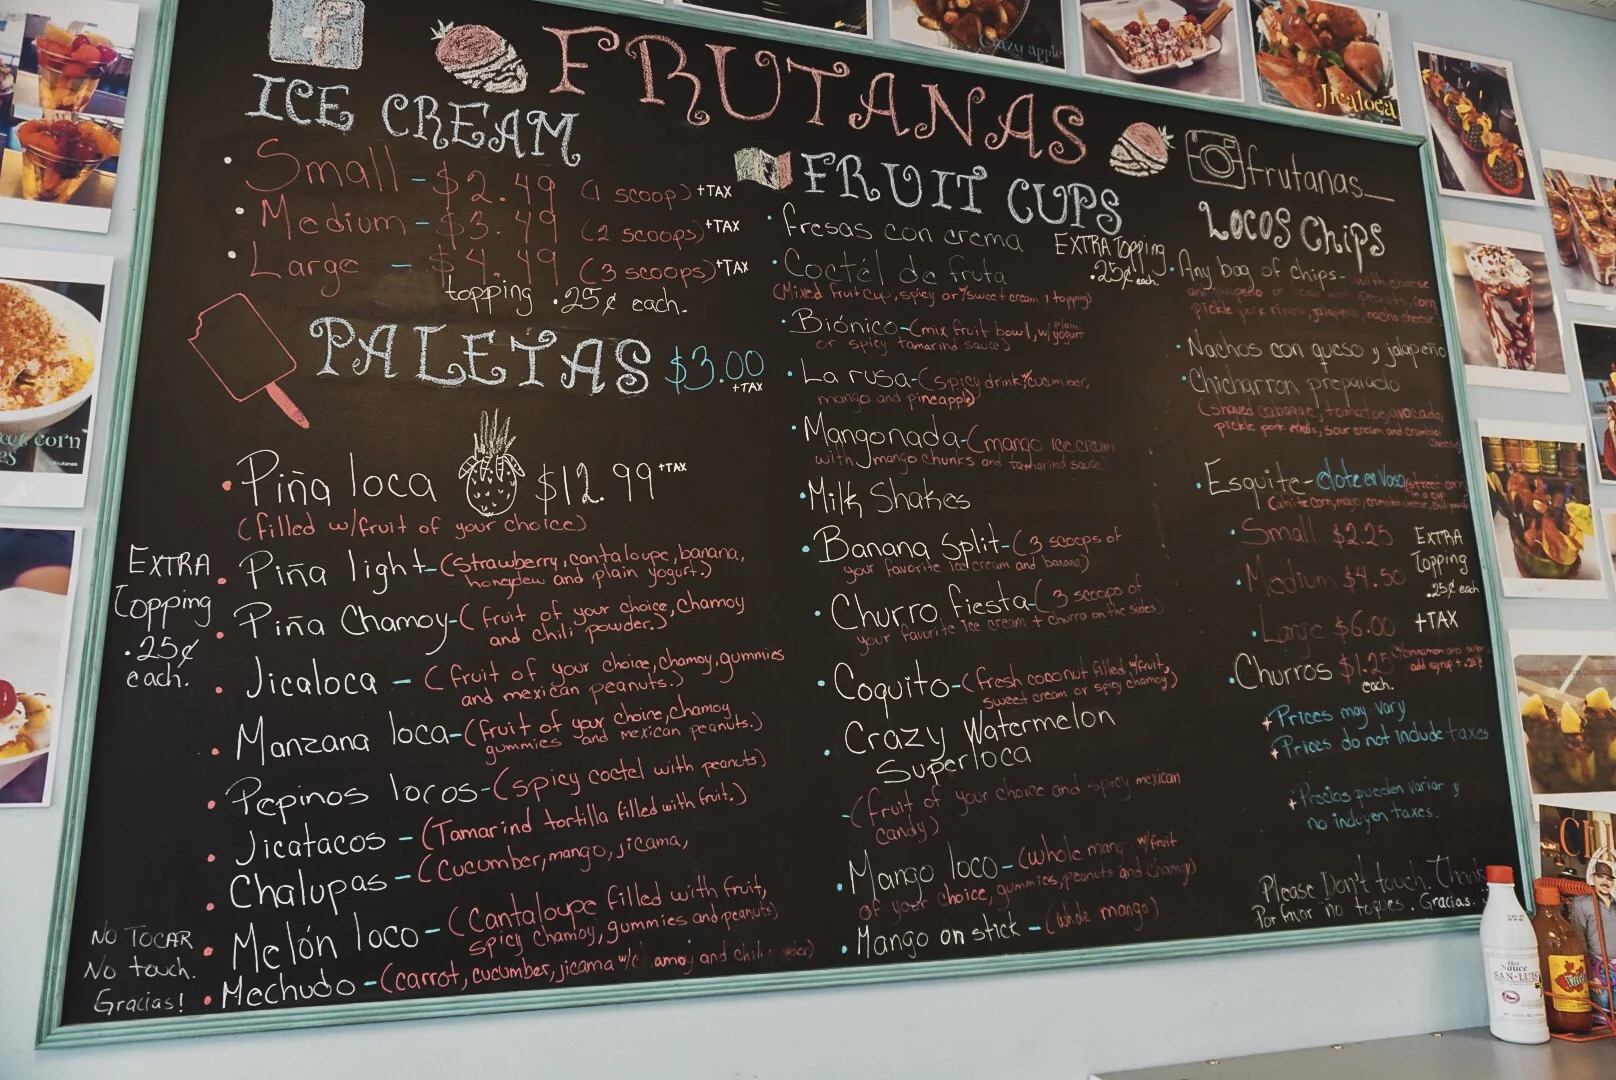 FRUTANAS
ICE CREAM
Small - $2.49 (1 scoop) +TAX
Medium - $3.49 (2 scoops) +TAX
Large - $4.49 (3 scoops) +TAX
topping .25¢ each.
PALETAS $3.00
+TAX
Piña loca $12.99 +TAX
(filled w/fruit of your choice)
EXTRA
Topping
.25¢
each.
Piña light - (strawberry, cantaloupe, banana,
honeydew and plain yogurt.)
Piña Chamoy - (fruit of your choice, chamoy
and chili powder.)
Jicaloca - (fruit of your choice, chamoy, gummies
and mexican peanuts.)
Manzana loca - (fruit of your choice, chamoy
gummies and mexican peanuts.)
Pepinos locos - (spicy coctel with peanuts)
Jicatacos - (Tamarind tortilla filled with fruit.)
Chalupas - (Cucumber, mango, jicama,
Melón loco - (Cantaloupe filled with fruit,
spicy chamoy, gummies and peanuts)
Mechudo - (carrot, cucumber, jicama and chili
NO TOCAR
No touch.
Gracias!
FRUIT CUPS
fresas con crema
EXTRA Topping
.25¢ each.
Coctél de fruta
(Mixed fruit cup, spicy or sweet cream 1 topping)
Biónico - (mix fruit bowl, w/ plain yogurt
or spicy tamarind sauce)
La rusa - (spicy drink cucumber,
mango and pineapple)
Mangonada - (mango ice cream
with mango chunks and tamarind sauce)
Milk Shakes
Banana Split - (3 scoops of
your favorite ice cream and banana)
Churro fiesta - (3 scoops of
your favorite ice cream + churro on the sides)
Coquito - (fresh coconut filled w/fruit,
sweet cream or spicy chamoy)
Crazy Watermelon
Superloca
- (fruit of your choice and spicy mexican
candy)
Mango loco - (whole mango w/fruit
of your choice, gummies, peanuts and chamoy)
Mango on stick - (whole mango)
frutanas_
LOCOS Chips
Any bag of chips - with cheese
and jalapeño or peanuts, corn
pickle pork rinds, jalapeño, nacho cheese
Nachos con queso y jalapeño
Chicharron preparado
(shaved cabbage, tomatoe, avocado,
pickle pork rinds, sour cream and
Esquite - elote en vaso (street corn
in a cup
Small $2.25
Medium $4.50
Large $6.00
EXTRA
Topping
.25¢ each
+TAX
Churros $1.25
each.
add syrup + .25¢
+ Prices may vary
+ Prices do not include taxes
+ Precios pueden variar y
no incluyen taxes.
Please Don't touch.
Por favor no toques. Gracias.
Crazy apple
Jicaloca
corn
Frutanas
SAN-LUIS